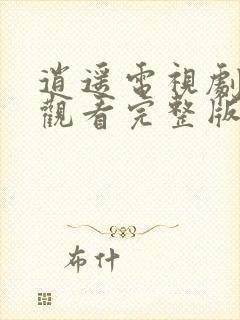 逍遥電視劇
觀看完整版
布什